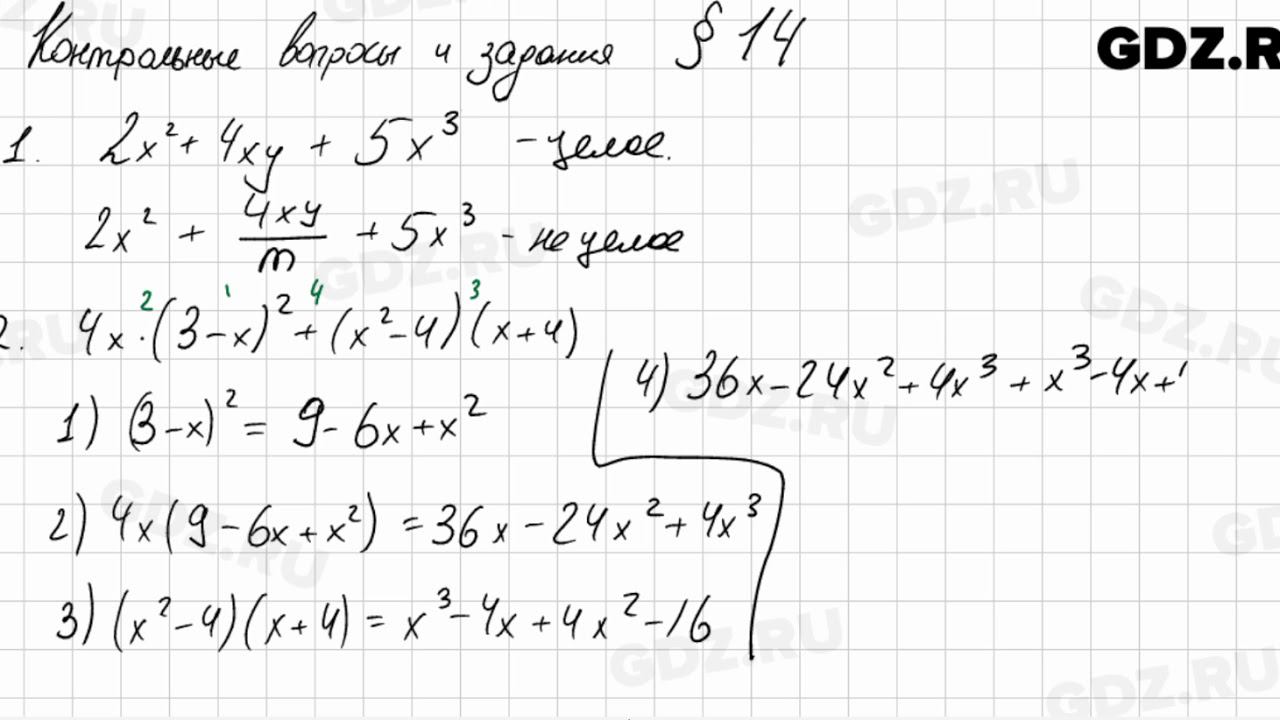 Контрольные вопросы и задания § 14
GDZ.R
1. 2x² + 4xy + 5x³ - целое.
2x² + 4xy/m + 5x³ - не целое
2 1 4 3
2. 4x·(3-x)² + (x²-4)(x+4)
1) (3-x)² = 9-6x+x²
2) 4x(9-6x+x²) = 36x-24x²+4x³
3) (x²-4)(x+4) = x³-4x+4x²-16
4) 36x-24x²+4x³+x³-4x+
GDZ.RU
GDZ.RU
GDZ.RU
GDZ.RU
GDZ.RU
GDZ.RU
GDZ.RU